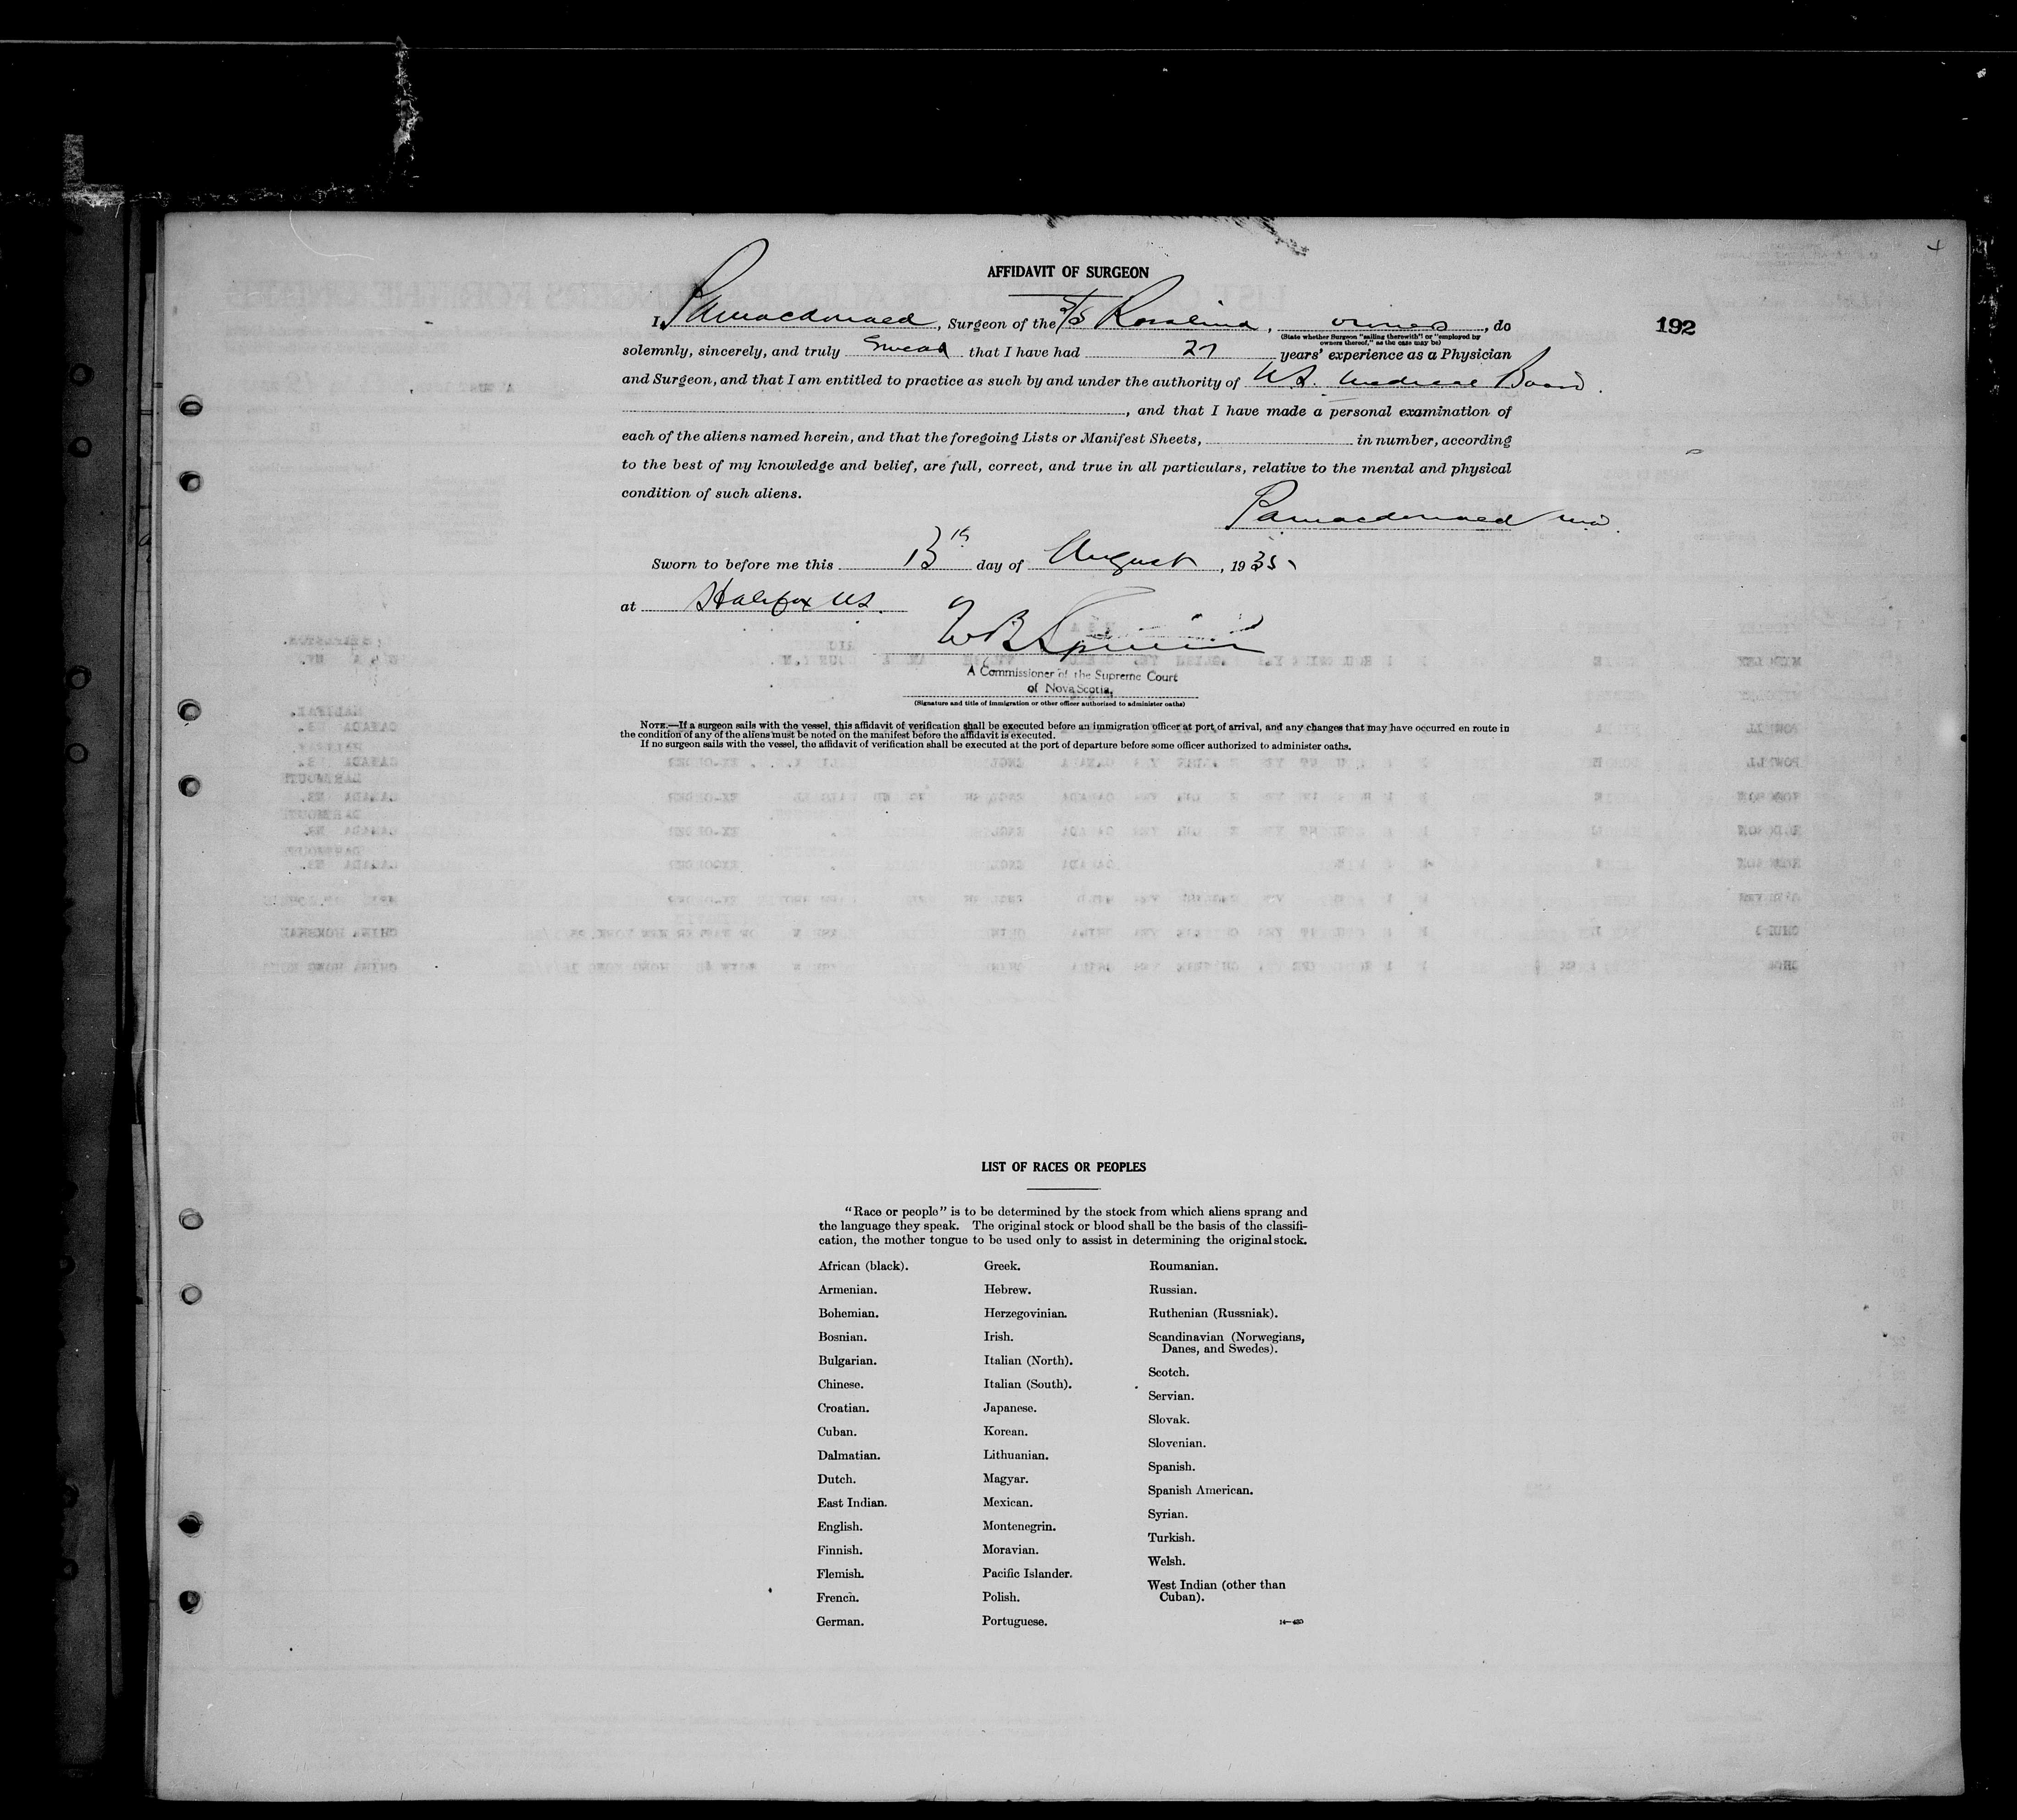 AFFIDAVIT OF SURGEON
I, P A Macdonald, Surgeon of the S/S Rosalind, owners, do
(State whether Surgeon "sailing therewith" or "employed by
owners thereof," as the case may be)
192
solemnly, sincerely, and truly swear that I have had 27 years' experience as a Physician
and Surgeon, and that I am entitled to practice as such by and under the authority of N.S. Medical Board.
, and that I have made a personal examination of
each of the aliens named herein, and that the foregoing Lists or Manifest Sheets, in number, according
to the best of my knowledge and belief, are full, correct, and true in all particulars, relative to the mental and physical
condition of such aliens.
P A Macdonald MD.
Sworn to before me this 13th day of August, 1935
at Halifax N.S.
A Commissioner of the Supreme Court
of Nova Scotia,
(Signature and title of immigration or other officer authorized to administer oaths)
NOTE.—If a surgeon sails with the vessel, this affidavit of verification shall be executed before an immigration officer at port of arrival, and any changes that may have occurred en route in
the condition of any of the aliens must be noted on the manifest before the affidavit is executed.
If no surgeon sails with the vessel, the affidavit of verification shall be executed at the port of departure before some officer authorized to administer oaths.
LIST OF RACES OR PEOPLES
"Race or people" is to be determined by the stock from which aliens sprang and
the language they speak. The original stock or blood shall be the basis of the classifi-
cation, the mother tongue to be used only to assist in determining the original stock.
African (black).
Armenian.
Bohemian.
Bosnian.
Bulgarian.
Chinese.
Croatian.
Cuban.
Dalmatian.
Dutch.
East Indian.
English.
Finnish.
Flemish.
French.
German.
Greek.
Hebrew.
Herzegovinian.
Irish.
Italian (North).
Italian (South).
Japanese.
Korean.
Lithuanian.
Magyar.
Mexican.
Montenegrin.
Moravian.
Pacific Islander.
Polish.
Portuguese.
Roumanian.
Russian.
Ruthenian (Russniak).
Scandinavian (Norwegians,
Danes, and Swedes).
Scotch.
Servian.
Slovak.
Slovenian.
Spanish.
Spanish American.
Syrian.
Turkish.
Welsh.
West Indian (other than
Cuban).